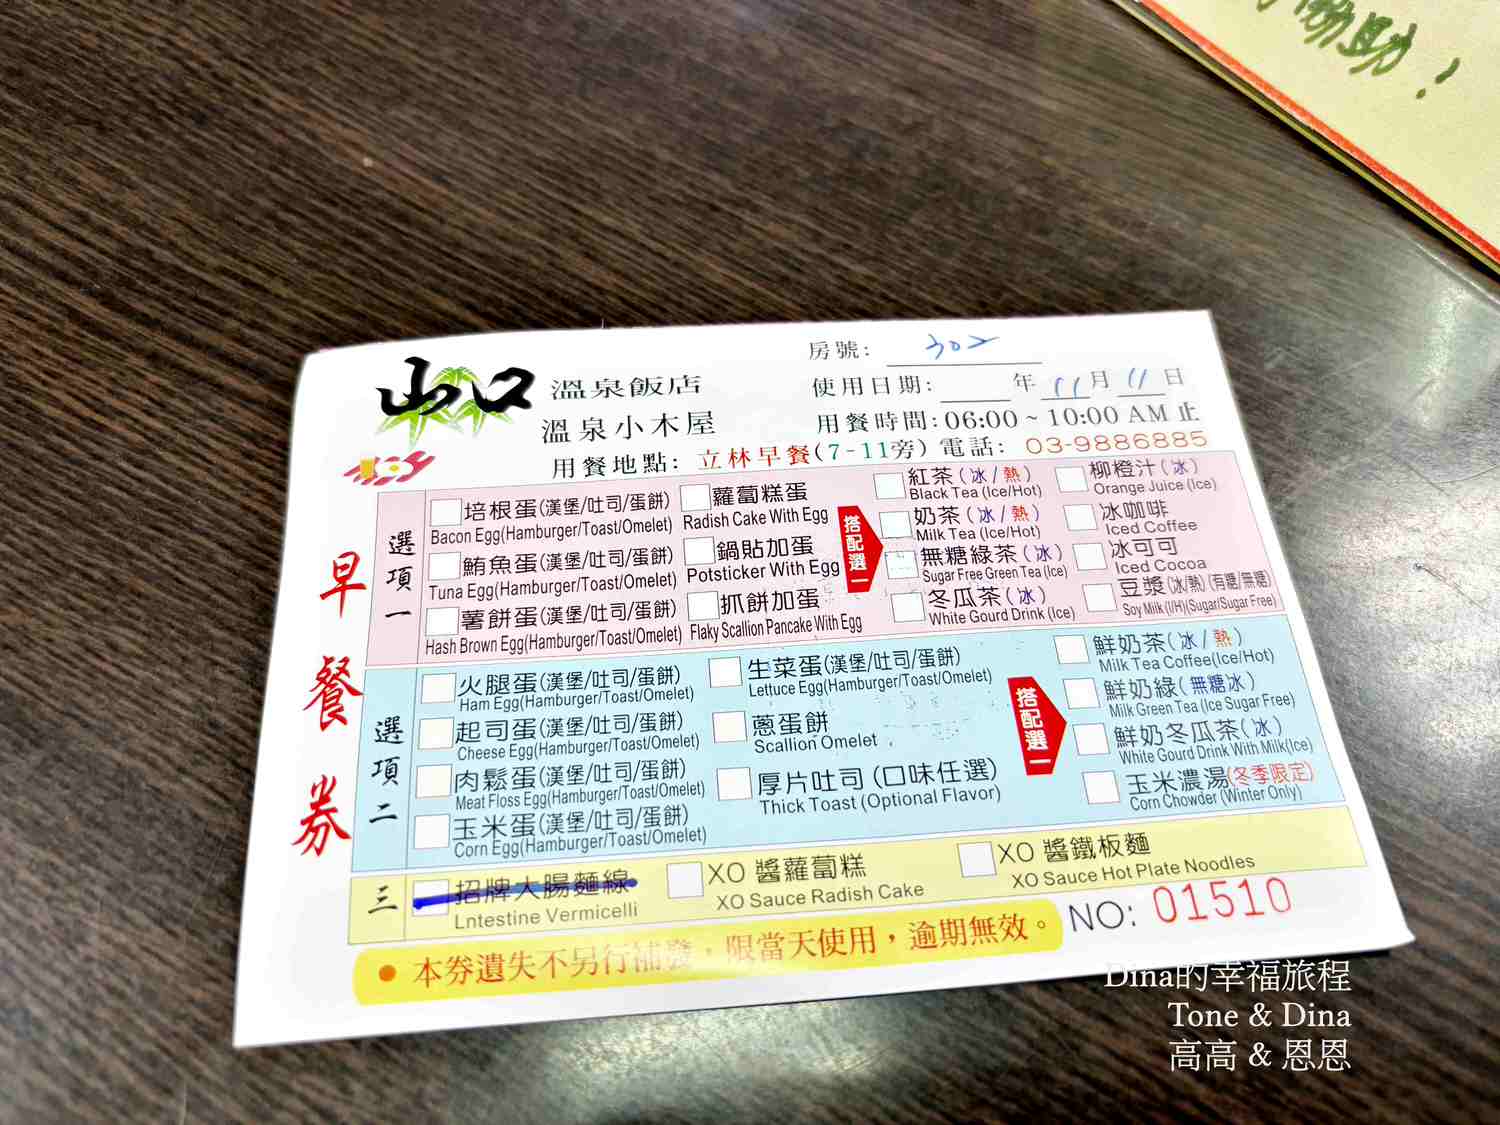 協助！
山口
溫泉飯店
溫泉小木屋
房號: 302
使用日期: 年 11 月 11 日
用餐時間: 06:00 ~ 10:00 AM 止
用餐地點: 立林早餐(7-11旁) 電話: 03-9886885
早餐券
選項一
培根蛋(漢堡/吐司/蛋餅)
Bacon Egg(Hamburger/Toast/Omelet)
鮪魚蛋(漢堡/吐司/蛋餅)
Tuna Egg(Hamburger/Toast/Omelet)
薯餅蛋(漢堡/吐司/蛋餅)
Hash Brown Egg(Hamburger/Toast/Omelet)
蘿蔔糕蛋
Radish Cake With Egg
鍋貼加蛋
Potsticker With Egg
抓餅加蛋
Flaky Scallion Pancake With Egg
搭配選一
紅茶(冰/熱)
Black Tea (Ice/Hot)
奶茶(冰/熱)
Milk Tea (Ice/Hot)
無糖綠茶(冰)
Sugar Free Green Tea (Ice)
冬瓜茶(冰)
White Gourd Drink (Ice)
柳橙汁(冰)
Orange Juice (Ice)
冰咖啡
Iced Coffee
冰可可
Iced Cocoa
豆漿(冰/熱)(有糖/無糖)
Soy Milk (I/H)(Sugar/Sugar Free)
選項二
火腿蛋(漢堡/吐司/蛋餅)
Ham Egg(Hamburger/Toast/Omelet)
起司蛋(漢堡/吐司/蛋餅)
Cheese Egg(Hamburger/Toast/Omelet)
肉鬆蛋(漢堡/吐司/蛋餅)
Meat Floss Egg(Hamburger/Toast/Omelet)
玉米蛋(漢堡/吐司/蛋餅)
Corn Egg(Hamburger/Toast/Omelet)
生菜蛋(漢堡/吐司/蛋餅)
Lettuce Egg(Hamburger/Toast/Omelet)
蔥蛋餅
Scallion Omelet
厚片吐司 (口味任選)
Thick Toast (Optional Flavor)
搭配選一
鮮奶茶(冰/熱)
Milk Tea Coffee(Ice/Hot)
鮮奶綠(無糖冰)
Milk Green Tea (Ice Sugar Free)
鮮奶冬瓜茶(冰)
White Gourd Drink With Milk(Ice)
玉米濃湯(冬季限定)
Corn Chowder (Winter Only)
三
招牌大腸麵線
Lntestine Vermicelli
XO 醬蘿蔔糕
XO Sauce Radish Cake
XO 醬鐵板麵
XO Sauce Hot Plate Noodles
● 本券遺失不另行補發，限當天使用，逾期無效。
NO: 01510
Dina的幸福旅程
Tone & Dina
高高 & 恩恩